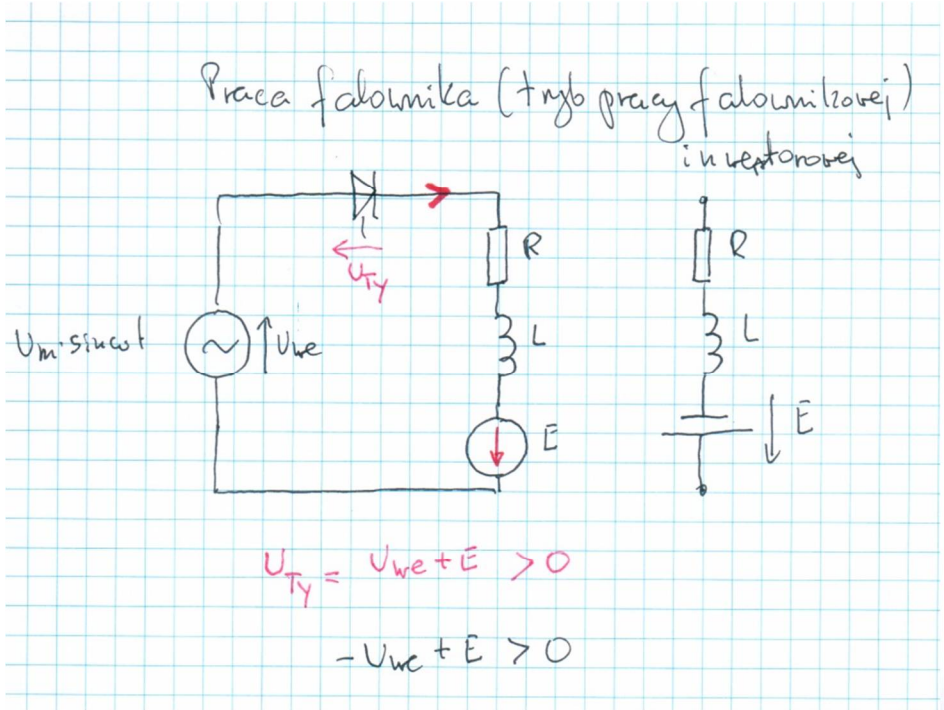 Praca falownika (tryb pracy falownikowej)
inwertorowej
R
R
U_Ty
L
L
Um·sinωt
Uwe
E
E
U_Ty = Uwe + E > 0
-Uwe + E > 0